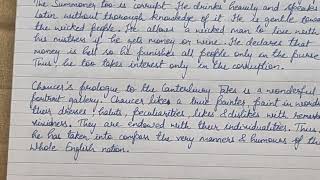 The Summoner too is corrupt. He drinks heavily and speaks
latin without thorough knowledge of it. He is gentle toward
the wicked people. He allows a wicked man to live with
his mistress if he sell money or wine. He declares that
money is hell so he punished all people only in the purse.
Thus he too takes interest only in the corruption.
Chaucer's prologue to the Canterbury Tales is a wonderful
portrait gallery. Chaucer likes a true painter, paint in words
their dresses, habits, peculiarities likes & dislikes with
vividness. They are endowed with their individualities. Thus,
he has taken into compass the very manners & humours of the
whole English nation.